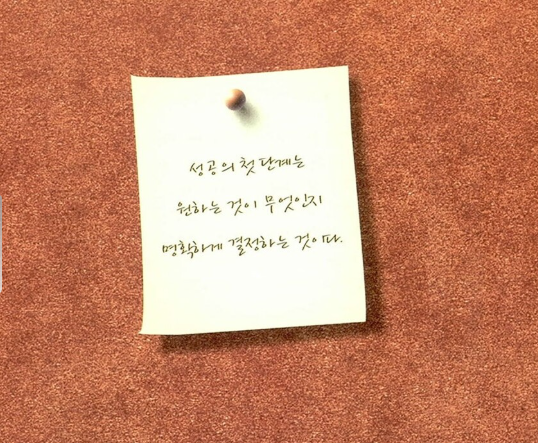 성공의 첫 단계는
원하는 것이 무엇인지
명확하게 결정하는 것이다.